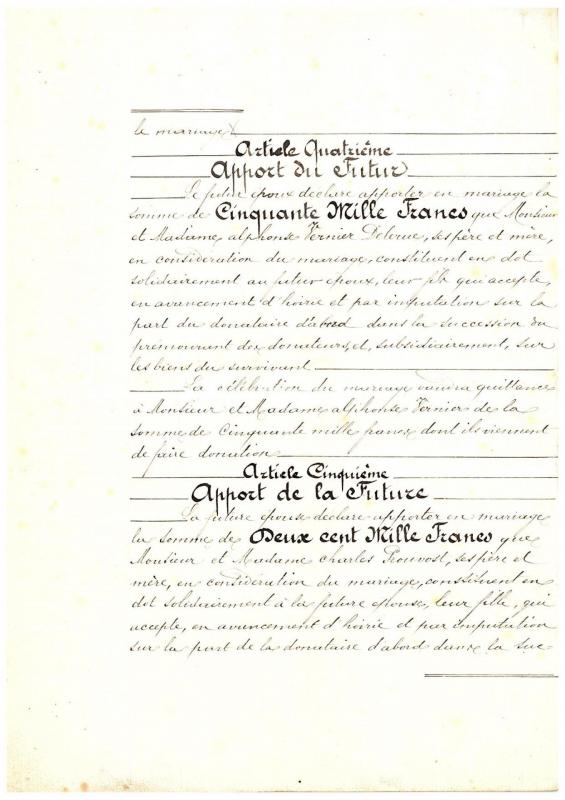 le mariage
Article Quatrième
Apport du Futur
Le futur époux déclare apporter en mariage la
somme de Cinquante Mille Francs que Monsieur
et Madame alphonse Vernier Delerue, ses père et mère,
en considération du mariage, constituent en dot
solidairement au futur époux, leur fils qui accepte,
en avancement d'hoirie et par imputation sur la
part du donataire d'abord dans la succession du
prémourant des donateurs, et, subsidiairement, sur
les biens du survivant
La célébration du mariage vaudra quittance
à Monsieur et Madame alphonse Vernier de la
somme de Cinquante mille francs dont ils viennent
de faire donation
Article Cinquième
Apport de la Future
La future épouse déclare apporter en mariage
la somme de Deux cent Mille Francs que
Monsieur et Madame Charles Prouvost, ses père et
mère, en considération du mariage, constituent en
dot solidairement à la future épouse, leur fille, qui
accepte, en avancement d'hoirie et par imputation
sur la part de la donataire d'abord dans la suc-